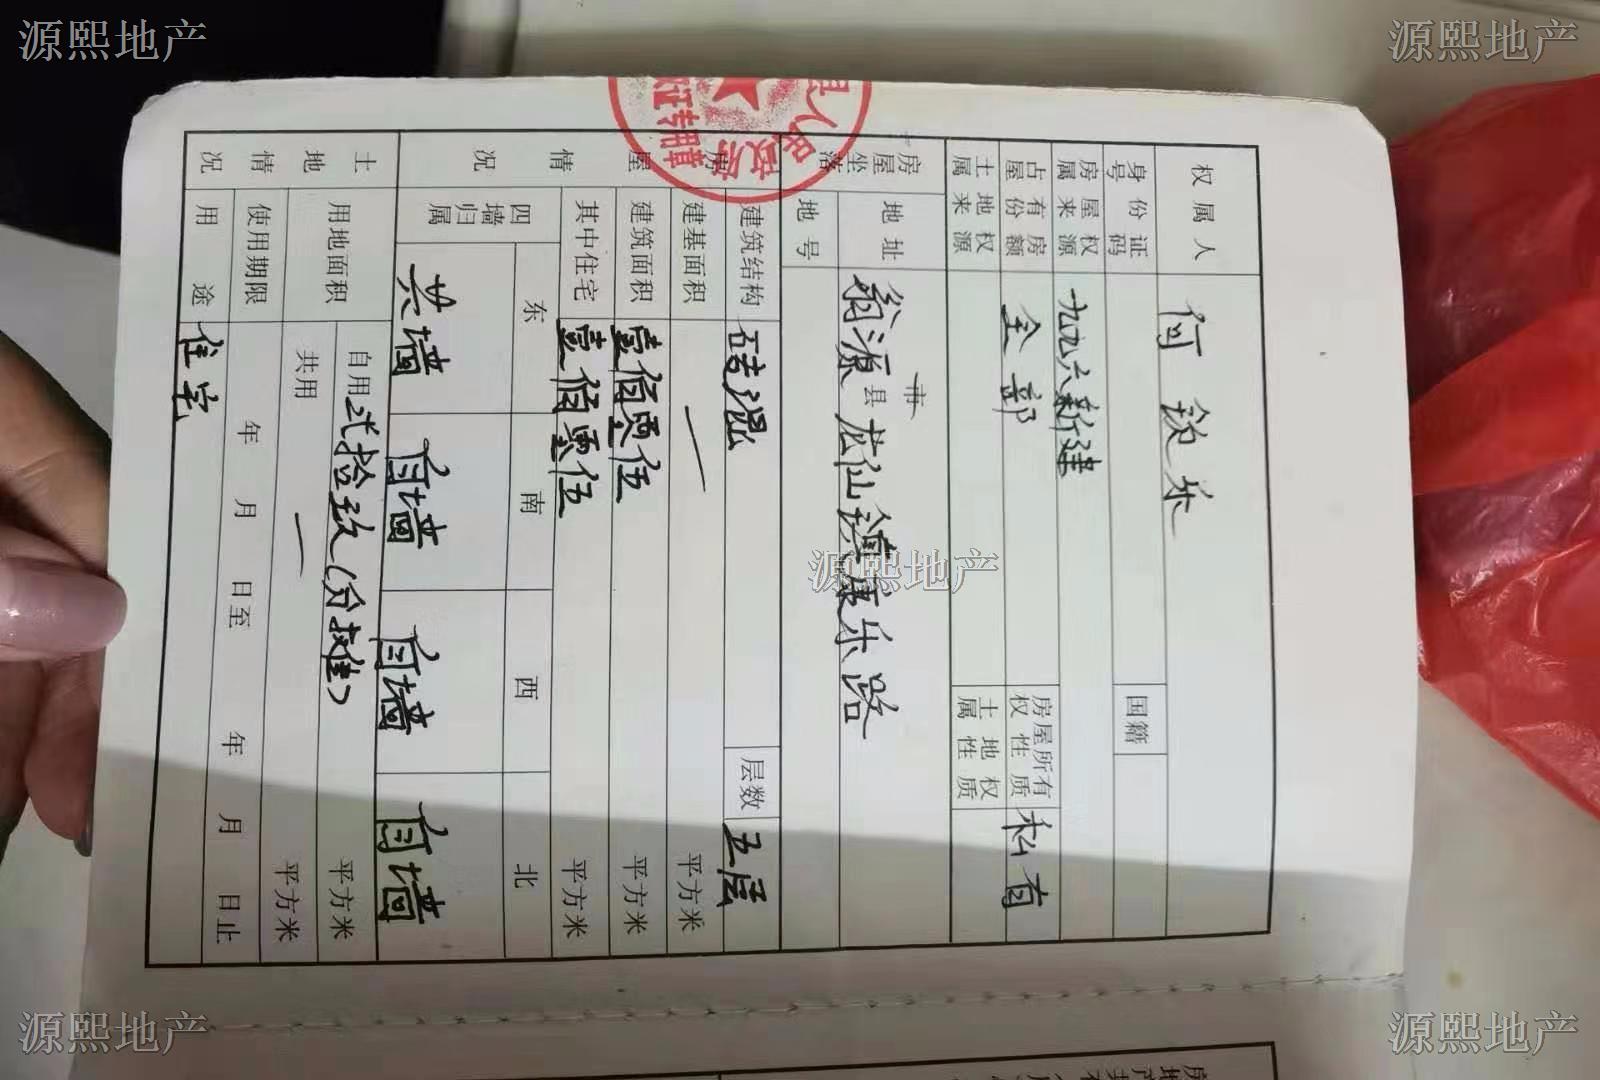 源熙地产
源熙地产
权属人 何锐乐
身份证号码 国籍
房屋权属来源 一九九六新建
占有房屋份额 全部 房屋所有权性质 私有
土地权属来源 土地权性质
房屋坐落 地址 翁源县龙仙镇康乐路
市
地号
房屋情况 建筑结构 砖混 层数 五层
建基面积 — 平方米
建筑面积 壹佰零伍 平方米
其中住宅 壹佰零伍 平方米
四墙归属 东 南 西 北
共墙 自墙 自墙 自墙
土地情况 用地面积 自用 弍拾玖(分摊) 平方米
共用 — 平方米
使用期限 年 月 日至 年 月 日止
用途 住宅
人民政府
证专用章
源熙地产
源熙地产
源熙地产